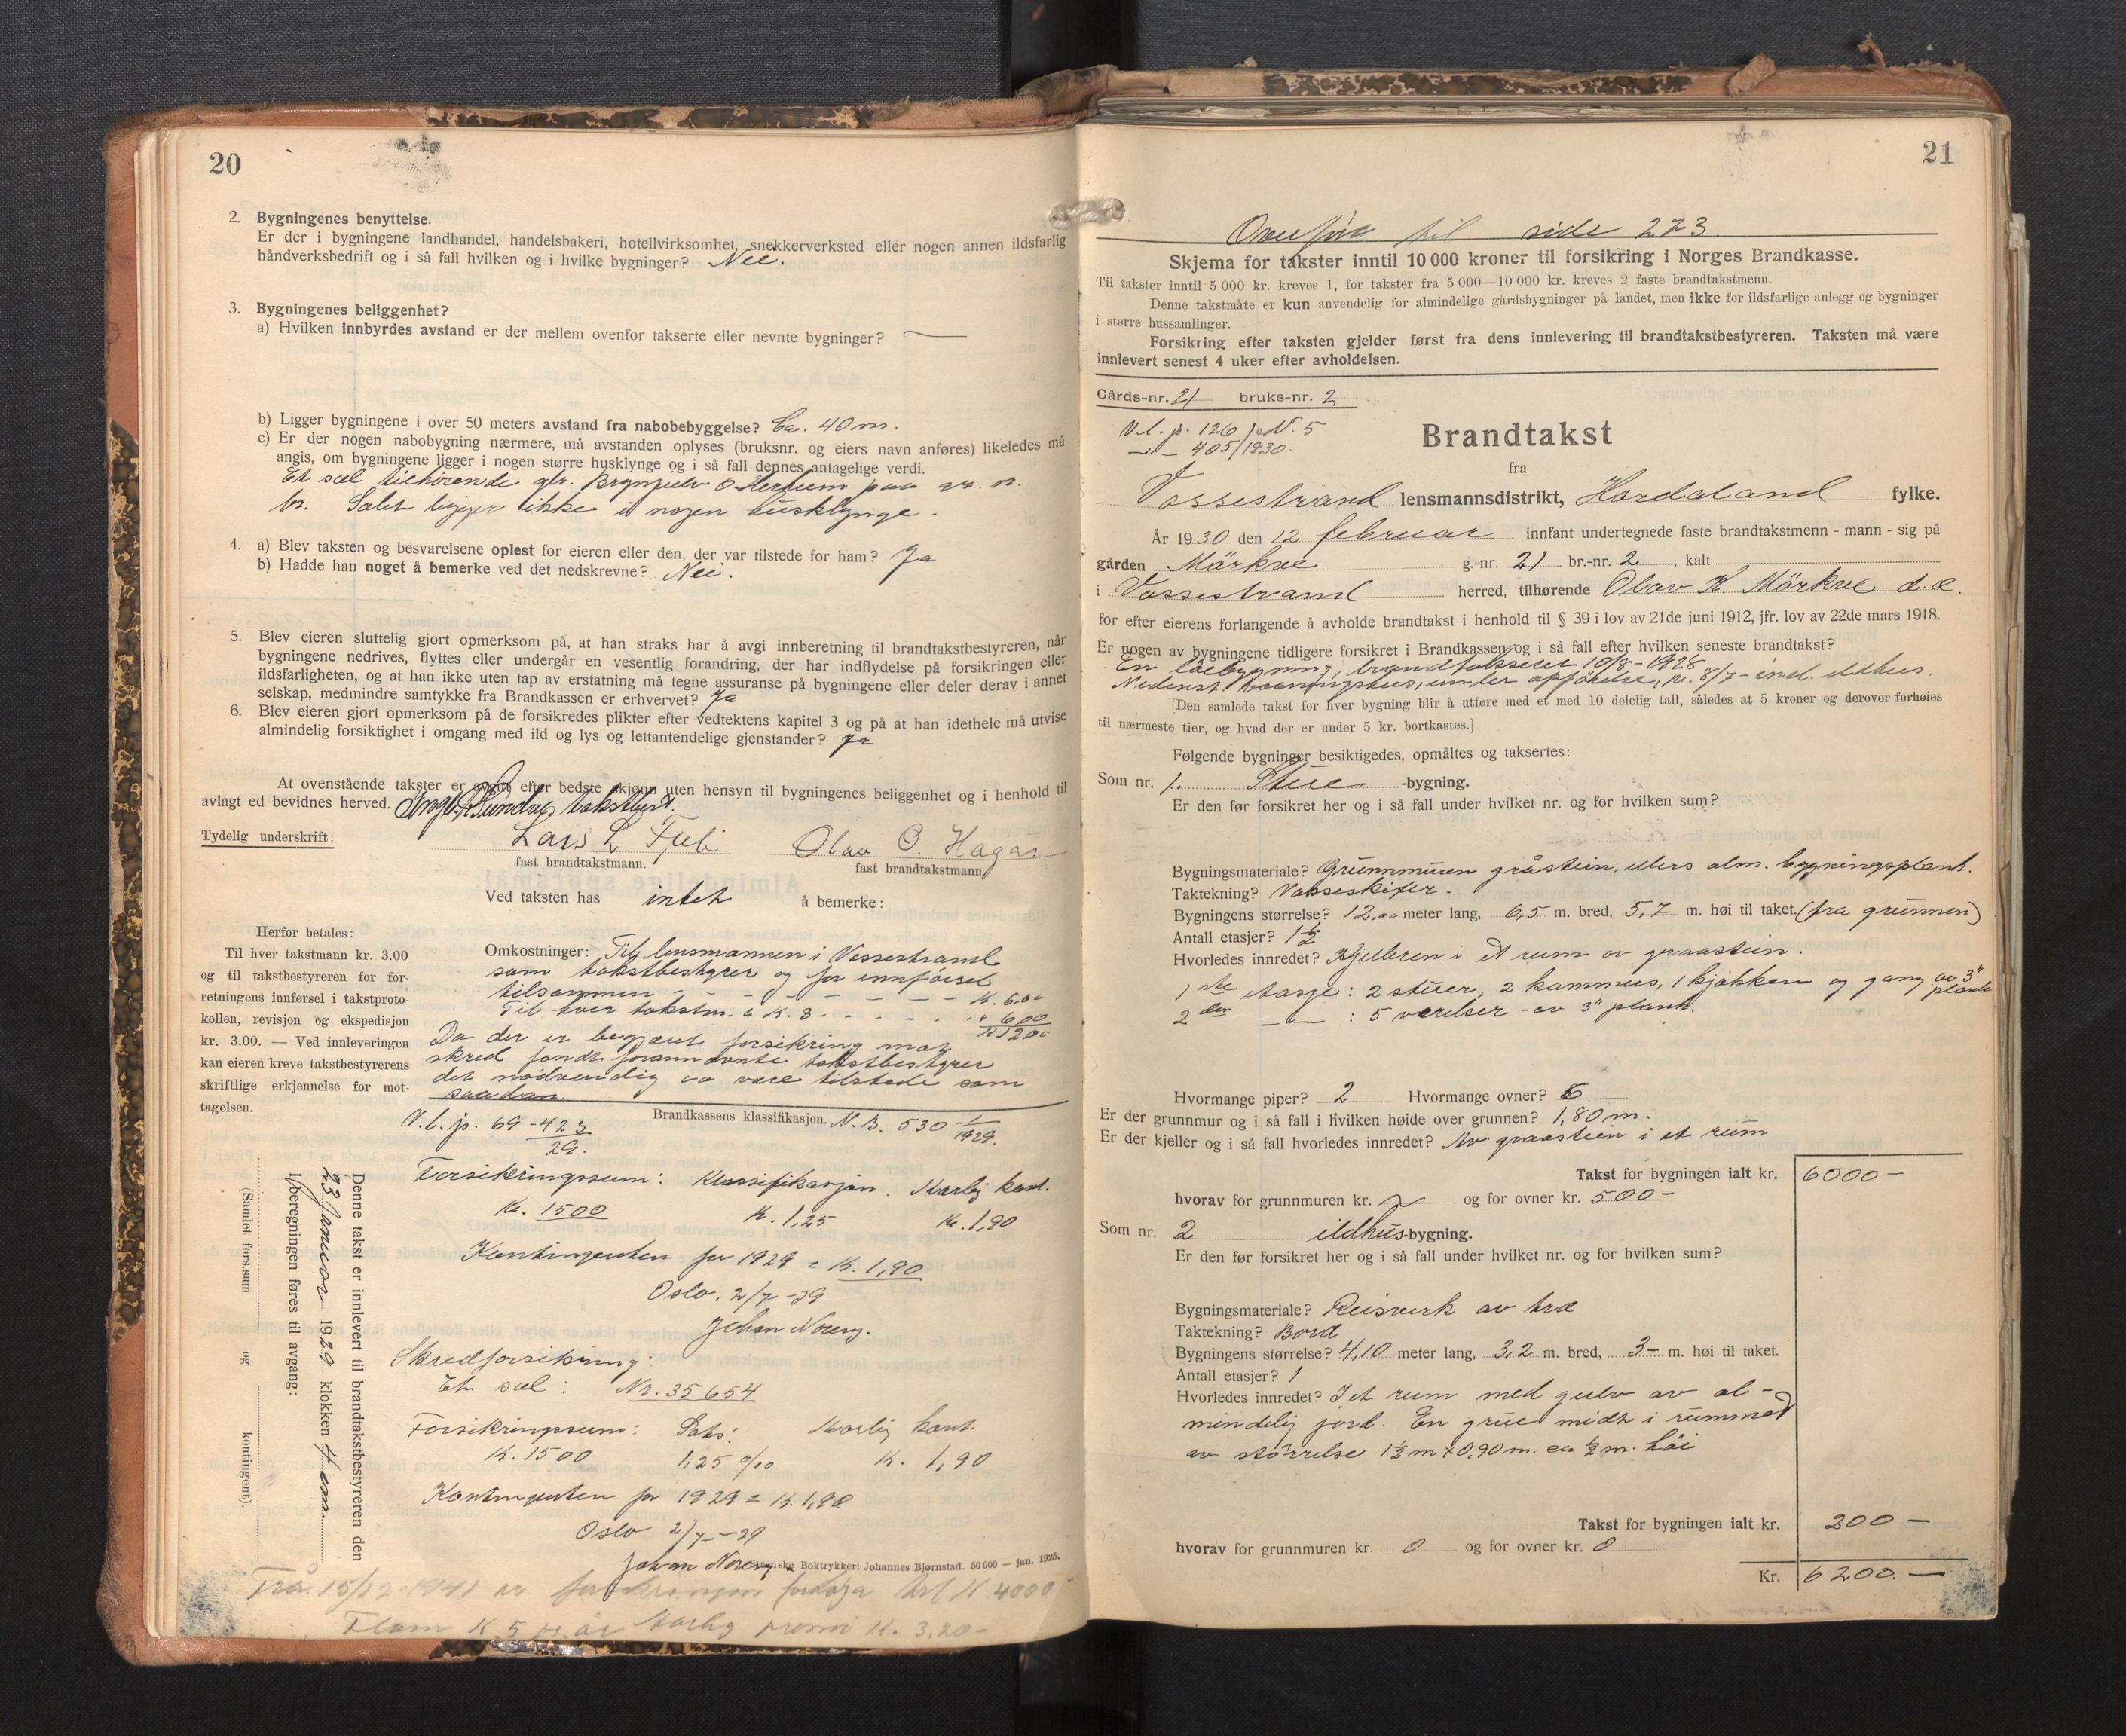 20
2. Bygningenes benyttelse.
Er der i bygningene landhandel, handelsbakeri, hotellvirksomhet, snekkerverksted eller nogen annen ildsfarlig
håndverksbedrift og i så fall hvilken og i hvilke bygninger? Nei.
3. Bygningenes beliggenhet?
a) Hvilken innbyrdes avstand er der mellem ovenfor takserte eller nevnte bygninger? —
b) Ligger bygningene i over 50 meters avstand fra nabobebyggelse? Ca. 40 m.
c) Er der nogen nabobygning nærmere, må avstanden oplyses (bruksnr. og eiers navn anføres) likeledes må
angis, om bygningene ligger i nogen større husklynge og i så fall dennes antagelige verdi.
Et sæl tilhørende Brynjulv O. paa gr. nr.
br. Sælet ligger ikke i nogen husklynge.
4. a) Blev taksten og besvarelsene oplest for eieren eller den, der var tilstede for ham? Ja
b) Hadde han noget å bemerke ved det nedskrevne? Nei.
5. Blev eieren sluttelig gjort opmerksom på, at han straks har å avgi innberetning til brandtakstbestyreren, når
bygningene nedrives, flyttes eller undergår en vesentlig forandring, der har indflydelse på forsikringen eller
ildsfarligheten, og at han ikke uten tap av erstatning må tegne assuranse på bygningene eller deler derav i annet
selskap, medmindre samtykke fra Brandkassen er erhvervet? Ja
6. Blev eieren gjort opmerksom på de forsikredes plikter efter vedtektens kapitel 3 og på at han idethele må utvise
almindelig forsiktighet i omgang med ild og lys og lettantendelige gjenstander? Ja
At ovenstående takster er avgitt efter bedste skjønn uten hensyn til bygningenes beliggenhet og i henhold til
avlagt ed bevidnes herved. takstbest.
Tydelig underskrift: Lars L Olav O. Hagar
fast brandtakstmann. fast brandtakstmann
Ved taksten has intet å bemerke:
Herfor betales:
Til hver takstmann kr. 3.00
og til takstbestyreren for for-
retningens innførsel i takstproto-
kollen, revisjon og ekspedisjon
kr. 3.00. — Ved innleveringen
kan eieren kreve takstbestyrerens
skriftlige erkjennelse for mot-
tagelsen.
Omkostninger: Til lensmannen i Vossestrand
som takstbestyrer og for innførsel
tilsammen - - - - - - - - K. 6.00
Til hver takstm. a K. 3. - - - - - " 6 00
K 12 00
Da der er begjært forsikring mot
skred fandt forannevnte takstbestyrer
det nødvendig aa være tilstede som
saadan.
Brandkassens klassifikasjon. N. B. 530 - 1/1929.
V.l.p. 69 - 423/29.
Forsikringssum: Klassifikasjon. Aarlig kont.
Kr. 1500 K. 1,25 Kr. 1,90
Kontingenten for 1929 = K. 1,90
Oslo. 2/7 - 29
Johan Noreng.
Skredforsikring:
Et sæl: Nr. 35654
Forsikringssum: Sats: Aarlig kont.
K. 1500 1,25 o/oo K. 1,90
Kontingenten for 1929 = K. 1,90
Oslo 2/7 - 29
Johan Noreng
Boktrykkeri Johannes Bjørnstad. 50 000 — jan. 1925.
Fra 15/12 - 1941 er forsikringen til K 4000
K. 5 K. 3,20 -
Denne takst er innlevert til brandtakstbestyreren den
23 januar 1929 klokken 4 em.
I beregningen føres til avgang:
(Samlet fors.sum og kontingent).
21
Overført til side 273.
Skjema for takster inntil 10 000 kroner til forsikring i Norges Brandkasse.
Til takster inntil 5 000 kr. kreves 1, for takster fra 5 000—10 000 kr. kreves 2 faste brandtakstmenn.
Denne takstmåte er kun anvendelig for almindelige gårdsbygninger på landet, men ikke for ildsfarlige anlegg og bygninger
i større hussamlinger.
Forsikring efter taksten gjelder først fra dens innlevering til brandtakstbestyreren. Taksten må være
innlevert senest 4 uker efter avholdelsen.
Gårds-nr. 21 bruks-nr. 2
V.l.p. 126 J.N. 5
—"— 405/1930.
Brandtakst
fra
Vossestrand lensmannsdistrikt, Hordaland fylke.
År 1930 den 12 februar innfant undertegnede faste brandtakstmenn - mann - sig på
gården Mörkve g.-nr. 21 br.-nr. 2, kalt
i Vossestrand herred, tilhørende Olav K. Mörkve d.e.
for efter eierens forlangende å avholde brandtakst i henhold til § 39 i lov av 21de juni 1912, jfr. lov av 22de mars 1918.
Er nogen av bygningene tidligere forsikret i Brandkassen og i så fall efter hvilken seneste brandtakst?
En løebygning, brandtakseret 10/8 - 1928
Nedenst. vaaningshus, under opførelse, nr. 8/7 - incl. ildhus.
[Den samlede takst for hver bygning blir å utføre med et med 10 delelig tall, således at 5 kroner og derover forhøies
til nærmeste tier, og hvad der er under 5 kr. bortkastes.]
Følgende bygninger besiktigedes, opmåltes og taksertes:
Som nr. 1. Stue -bygning.
Er den før forsikret her og i så fall under hvilket nr. og for hvilken sum?
Bygningsmateriale? Grunnmuren gråstein, ellers alm. bygningsplank.
Taktekning? Vosseskifer.
Bygningens størrelse? 12,00 meter lang, 6,5 m. bred, 5,7 m. høi til taket. (fra grunnen)
Antall etasjer? 1½
Hvorledes innredet? Kjelleren i et rum av graastein.
1ste etasje: 2 stuer, 2 kammers, 1 kjøkken og gang av 3" plank
2den —"— : 5 værelser - av 3" plank.
Hvormange piper? 2 Hvormange ovner? 5
Er der grunnmur og i så fall i hvilken høide over grunnen? 1,80 m.
Er der kjeller og i så fall hvorledes innredet? Av graastein i et rum
Takst for bygningen ialt kr. 6000 —
hvorav for grunnmuren kr. og for ovner kr. 500 -
Som nr. 2 ildhus-bygning.
Er den før forsikret her og i så fall under hvilket nr. og for hvilken sum?
Bygningsmateriale? Reisverk av træ
Taktekning? Bord
Bygningens størrelse? 4,10 meter lang, 3,2 m. bred, 3 - m. høi til taket.
Antall etasjer? 1
Hvorledes innredet? I et rum med gulv av al-
mindelig jord. En grue midt i rummet
av størrelse 1½ m x 0,90 m. ca ½ m. høi
Takst for bygningen ialt kr. 200 —
hvorav for grunnmuren kr. 0 og for ovner kr. 0
Kr. 6200. —